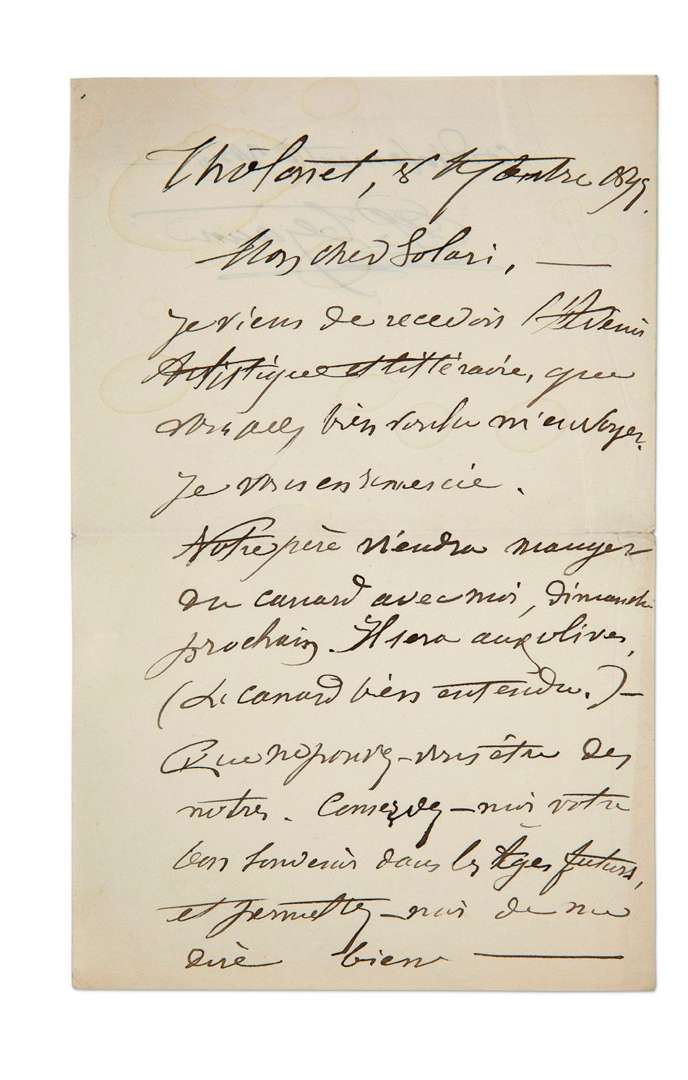 Thôlonet, 8 7bre 1899.
Mon cher Solari, —
je viens de recevoir l'Avenir
Artistique et littéraire, que
vous avez bien voulu m'envoyer.
Je vous en remercie.
Notre père viendra manger
du canard avec moi, dimanche
prochain. Il sera aux olives,
(Le canard bien entendu.) —
Que ne pouvez-vous être des
nôtres. Conservez-moi votre
bon souvenir dans les Âges futurs,
et permettez-moi de me
dire bien —